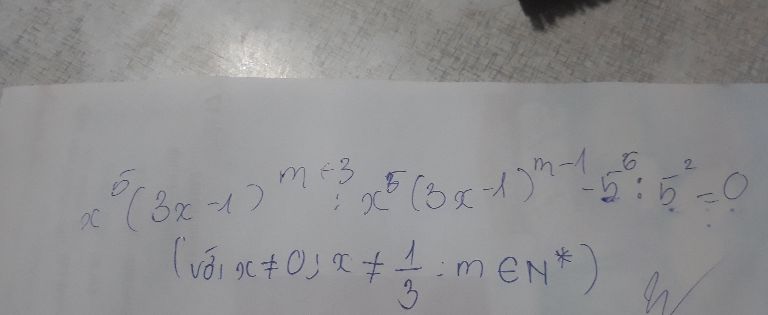 x⁵(3x-1)^{m+3} : x⁵(3x-1)^{m-1} - 5⁶ : 5² = 0
(với x ≠ 0; x ≠ 1/3 : m ∈ N*)